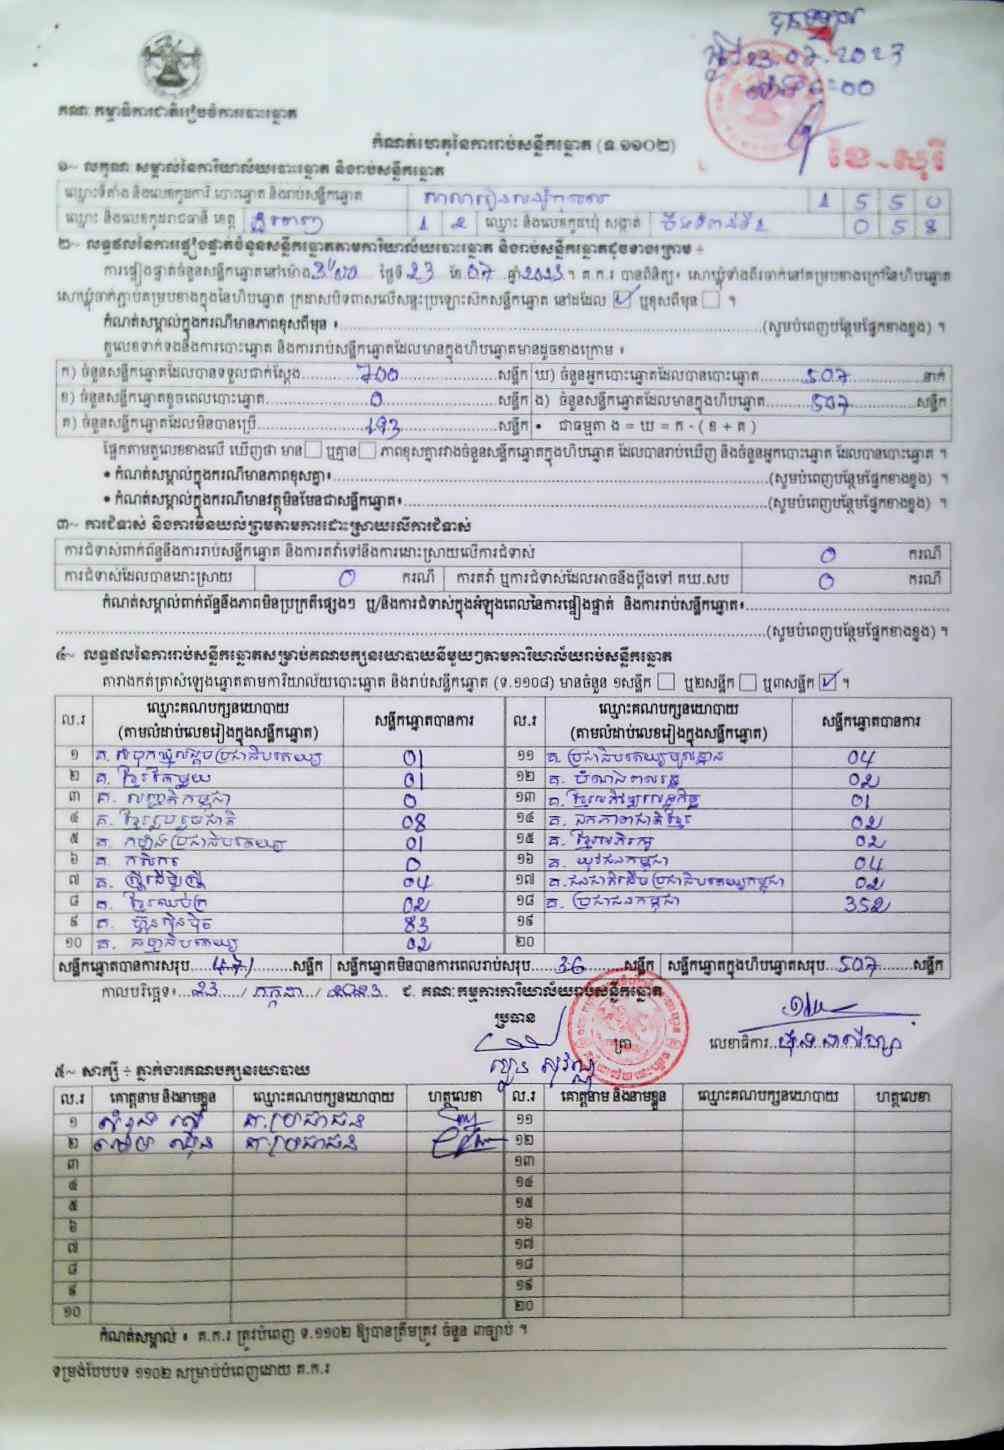 គណៈកម្មាធិការជាតិរៀបចំការបោះឆ្នោត
23.07.2023
កំណត់ហេតុនៃការរាប់សន្លឹកឆ្នោត (ទ.១១០២)
១~ លក្ខណៈសម្គាល់នៃការិយាល័យបោះឆ្នោត និងរាប់សន្លឹកឆ្នោត
ឈ្មោះទីតាំង និងលេខកូដការិ.បោះឆ្នោត និងរាប់សន្លឹកឆ្នោត 1 5 5 0
ឈ្មោះ និងលេខកូដរាជធានី ខេត្ត ភ្នំពេញ 1 2 ឈ្មោះ និងលេខកូដឃុំ សង្កាត់ 0 5 8
២~ លទ្ធផលនៃការផ្ទៀងផ្ទាត់ចំនួនសន្លឹកឆ្នោតតាមការិយាល័យបោះឆ្នោត និងរាប់សន្លឹកឆ្នោតដូចខាងក្រោម ÷
ការផ្ទៀងផ្ទាត់ចំនួនសន្លឹកឆ្នោតនៅម៉ោង ថ្ងៃទី 23 ខែ 07 ឆ្នាំ 2023 ។ គ.ក.រ បានពិនិត្យ៖ សោឃ្លុំទាំងពីរចាក់នៅគម្របខាងក្រៅនៃហិបឆ្នោត
សោឃ្លុំចាក់ភ្ជាប់គម្របខាងក្នុងនៃហិបឆ្នោត ក្រដាសបិទពាសលើសន្ទះប្រឡោះសិកសន្លឹកឆ្នោត នៅដដែល ☑ ឬខុសពីមុន ☐ ។
កំណត់សម្គាល់ក្នុងករណីមានភាពខុសពីមុន ៖ (សូមបំពេញបន្ថែមផ្នែកខាងខ្នង) ។
តួលេខទាក់ទងនឹងការបោះឆ្នោត និងការរាប់សន្លឹកឆ្នោតដែលមានក្នុងហិបឆ្នោតមានដូចខាងក្រោម ៖
ក) ចំនួនសន្លឹកឆ្នោតដែលបានទទួលជាក់ស្តែង 700 សន្លឹក ឃ) ចំនួនអ្នកបោះឆ្នោតដែលបានបោះឆ្នោត 507 នាក់
ខ) ចំនួនសន្លឹកឆ្នោតខូចពេលបោះឆ្នោត 0 សន្លឹក ង) ចំនួនសន្លឹកឆ្នោតដែលមានក្នុងហិបឆ្នោត 507 សន្លឹក
គ) ចំនួនសន្លឹកឆ្នោតដែលមិនបានប្រើ 193 សន្លឹក • ជាធម្មតា ង = ឃ = ក - ( ខ + គ )
ផ្អែកតាមតួលេខខាងលើ ឃើញថា មាន ☐ ឬគ្មាន ☐ ភាពខុសគ្នារវាងចំនួនសន្លឹកឆ្នោតក្នុងហិបឆ្នោត ដែលបានរាប់ឃើញ និងចំនួនអ្នកបោះឆ្នោត ដែលបានបោះឆ្នោត ។
• កំណត់សម្គាល់ក្នុងករណីមានភាពខុសគ្នា៖ (សូមបំពេញបន្ថែមផ្នែកខាងខ្នង) ។
• កំណត់សម្គាល់ក្នុងករណីមានវត្ថុមិនមែនជាសន្លឹកឆ្នោត៖ (សូមបំពេញបន្ថែមផ្នែកខាងខ្នង) ។
៣~ ការជំទាស់ និងការមិនយល់ព្រមតាមការដោះស្រាយលើការជំទាស់
ការជំទាស់ពាក់ព័ន្ធនឹងការរាប់សន្លឹកឆ្នោត និងការតវ៉ាទៅនឹងការដោះស្រាយលើការជំទាស់ 0 ករណី
ការជំទាស់ដែលបានដោះស្រាយ 0 ករណី ការតវ៉ា ឬការជំទាស់ដែលអាចនឹងប្តឹងទៅ គឃ.សប 0 ករណី
កំណត់សម្គាល់ពាក់ព័ន្ធនឹងភាពមិនប្រក្រតីផ្សេងៗ ឬ/និងការជំទាស់ក្នុងអំឡុងពេលនៃការផ្ទៀងផ្ទាត់ និងការរាប់សន្លឹកឆ្នោត៖
(សូមបំពេញបន្ថែមផ្នែកខាងខ្នង) ។
៤~ លទ្ធផលនៃការរាប់សន្លឹកឆ្នោតសម្រាប់គណបក្សនយោបាយនីមួយៗតាមការិយាល័យរាប់សន្លឹកឆ្នោត
តារាងកត់ត្រាសំឡេងឆ្នោតតាមការិយាល័យបោះឆ្នោត និងរាប់សន្លឹកឆ្នោត (ទ.១១០៨) មានចំនួន ១សន្លឹក ☐ ឬ២សន្លឹក ☐ ឬ៣សន្លឹក ☑ ។
ល.រ ឈ្មោះគណបក្សនយោបាយ (តាមលំដាប់លេខរៀងក្នុងសន្លឹកឆ្នោត) សន្លឹកឆ្នោតបានការ ល.រ ឈ្មោះគណបក្សនយោបាយ (តាមលំដាប់លេខរៀងក្នុងសន្លឹកឆ្នោត) សន្លឹកឆ្នោតបានការ
១ គ. សំបុកឃ្មុំសង្គមប្រជាធិបតេយ្យ 01 ១១ គ. ប្រជាធិបតេយ្យមូលដ្ឋាន 04
២ គ. ខ្មែរតែមួយ 01 ១២ គ. បំណងពលរដ្ឋ 02
៣ គ. សញ្ជាតិកម្ពុជា 0 ១៣ គ. ខ្មែរអភិវឌ្ឍន៍សេដ្ឋកិច្ច 01
៤ គ. ខ្មែររួបរួមជាតិ 08 ១៤ គ. ឯកភាពជាតិខ្មែរ 02
៥ គ. កម្លាំងប្រជាធិបតេយ្យ 01 ១៥ គ. ខ្មែរអភិរក្ស 02
៦ គ. កសិករ 0 ១៦ គ. យុវជនកម្ពុជា 04
៧ គ. ស្ត្រីដើម្បីស្ត្រី 04 ១៧ គ. ជនជាតិដើមប្រជាធិបតេយ្យកម្ពុជា 02
៨ គ. ខ្មែរឈប់ក្រ 02 ១៨ គ. ប្រជាជនកម្ពុជា 352
៩ គ. ហ្វ៊ុនស៊ិនប៉ិច 83 ១៩
១០ គ. ធម្មាធិបតេយ្យ 02 ២០
សន្លឹកឆ្នោតបានការសរុប 471 សន្លឹក សន្លឹកឆ្នោតមិនបានការពេលរាប់សរុប 36 សន្លឹក សន្លឹកឆ្នោតក្នុងហិបឆ្នោតសរុប 507 សន្លឹក
កាលបរិច្ឆេទ៖ 23 / កក្កដា / 2023 ៩. គណៈកម្មការការិយាល័យរាប់សន្លឹកឆ្នោត
ប្រធាន ត្រា លេខាធិការ
៥~ សាក្សី ÷ ភ្នាក់ងារគណបក្សនយោបាយ
ល.រ គោត្តនាម និងនាមខ្លួន ឈ្មោះគណបក្សនយោបាយ ហត្ថលេខា ល.រ គោត្តនាម និងនាមខ្លួន ឈ្មោះគណបក្សនយោបាយ ហត្ថលេខា
១ គ.ប្រជាជន ១១
២ គ.ប្រជាជន ១២
៣ ១៣
៤ ១៤
៥ ១៥
៦ ១៦
៧ ១៧
៨ ១៨
៩ ១៩
១០ ២០
កំណត់សម្គាល់ ៖ គ.ក.រ ត្រូវបំពេញ ទ.១១០២ ឱ្យបានត្រឹមត្រូវ ចំនួន ៣ច្បាប់ ។
ទម្រង់បែបបទ ១១០២ សម្រាប់បំពេញដោយ គ.ក.រ